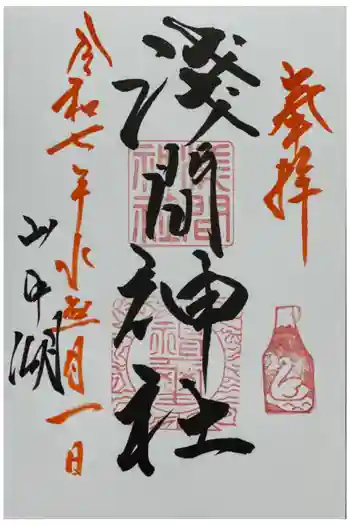 奉拝
淺間神社
淺間神社
令和七年水無月一日
山中湖